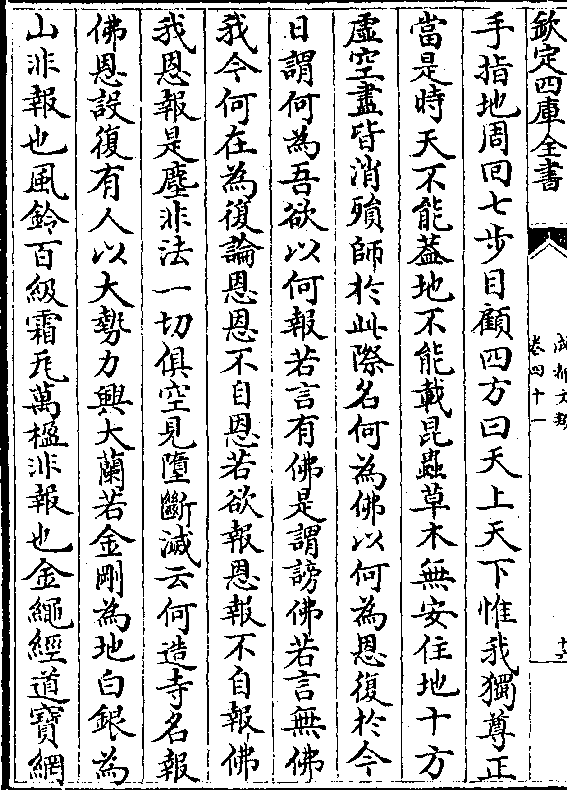 欽定四庫全書
成都文類
卷四十一
手指地周回七步目顧四方曰天上天下惟我獨尊正
當是時天不能葢地不能載昆蟲草木無安住地十方
虛空盡皆消殞師於此際名何為佛以何為恩復於今
日謂何為吾欲以何報若言有佛是謂謗佛若言無佛
我今何在為復論恩恩不自恩若欲報恩報不自報佛
我恩報是塵非法一切俱空見墮斷滅云何造寺名報
佛恩設復有人以大勢力興大蘭若金剛為地白銀為
山非報也風鈴百級霜瓦萬楹非報也金繩經道寶網